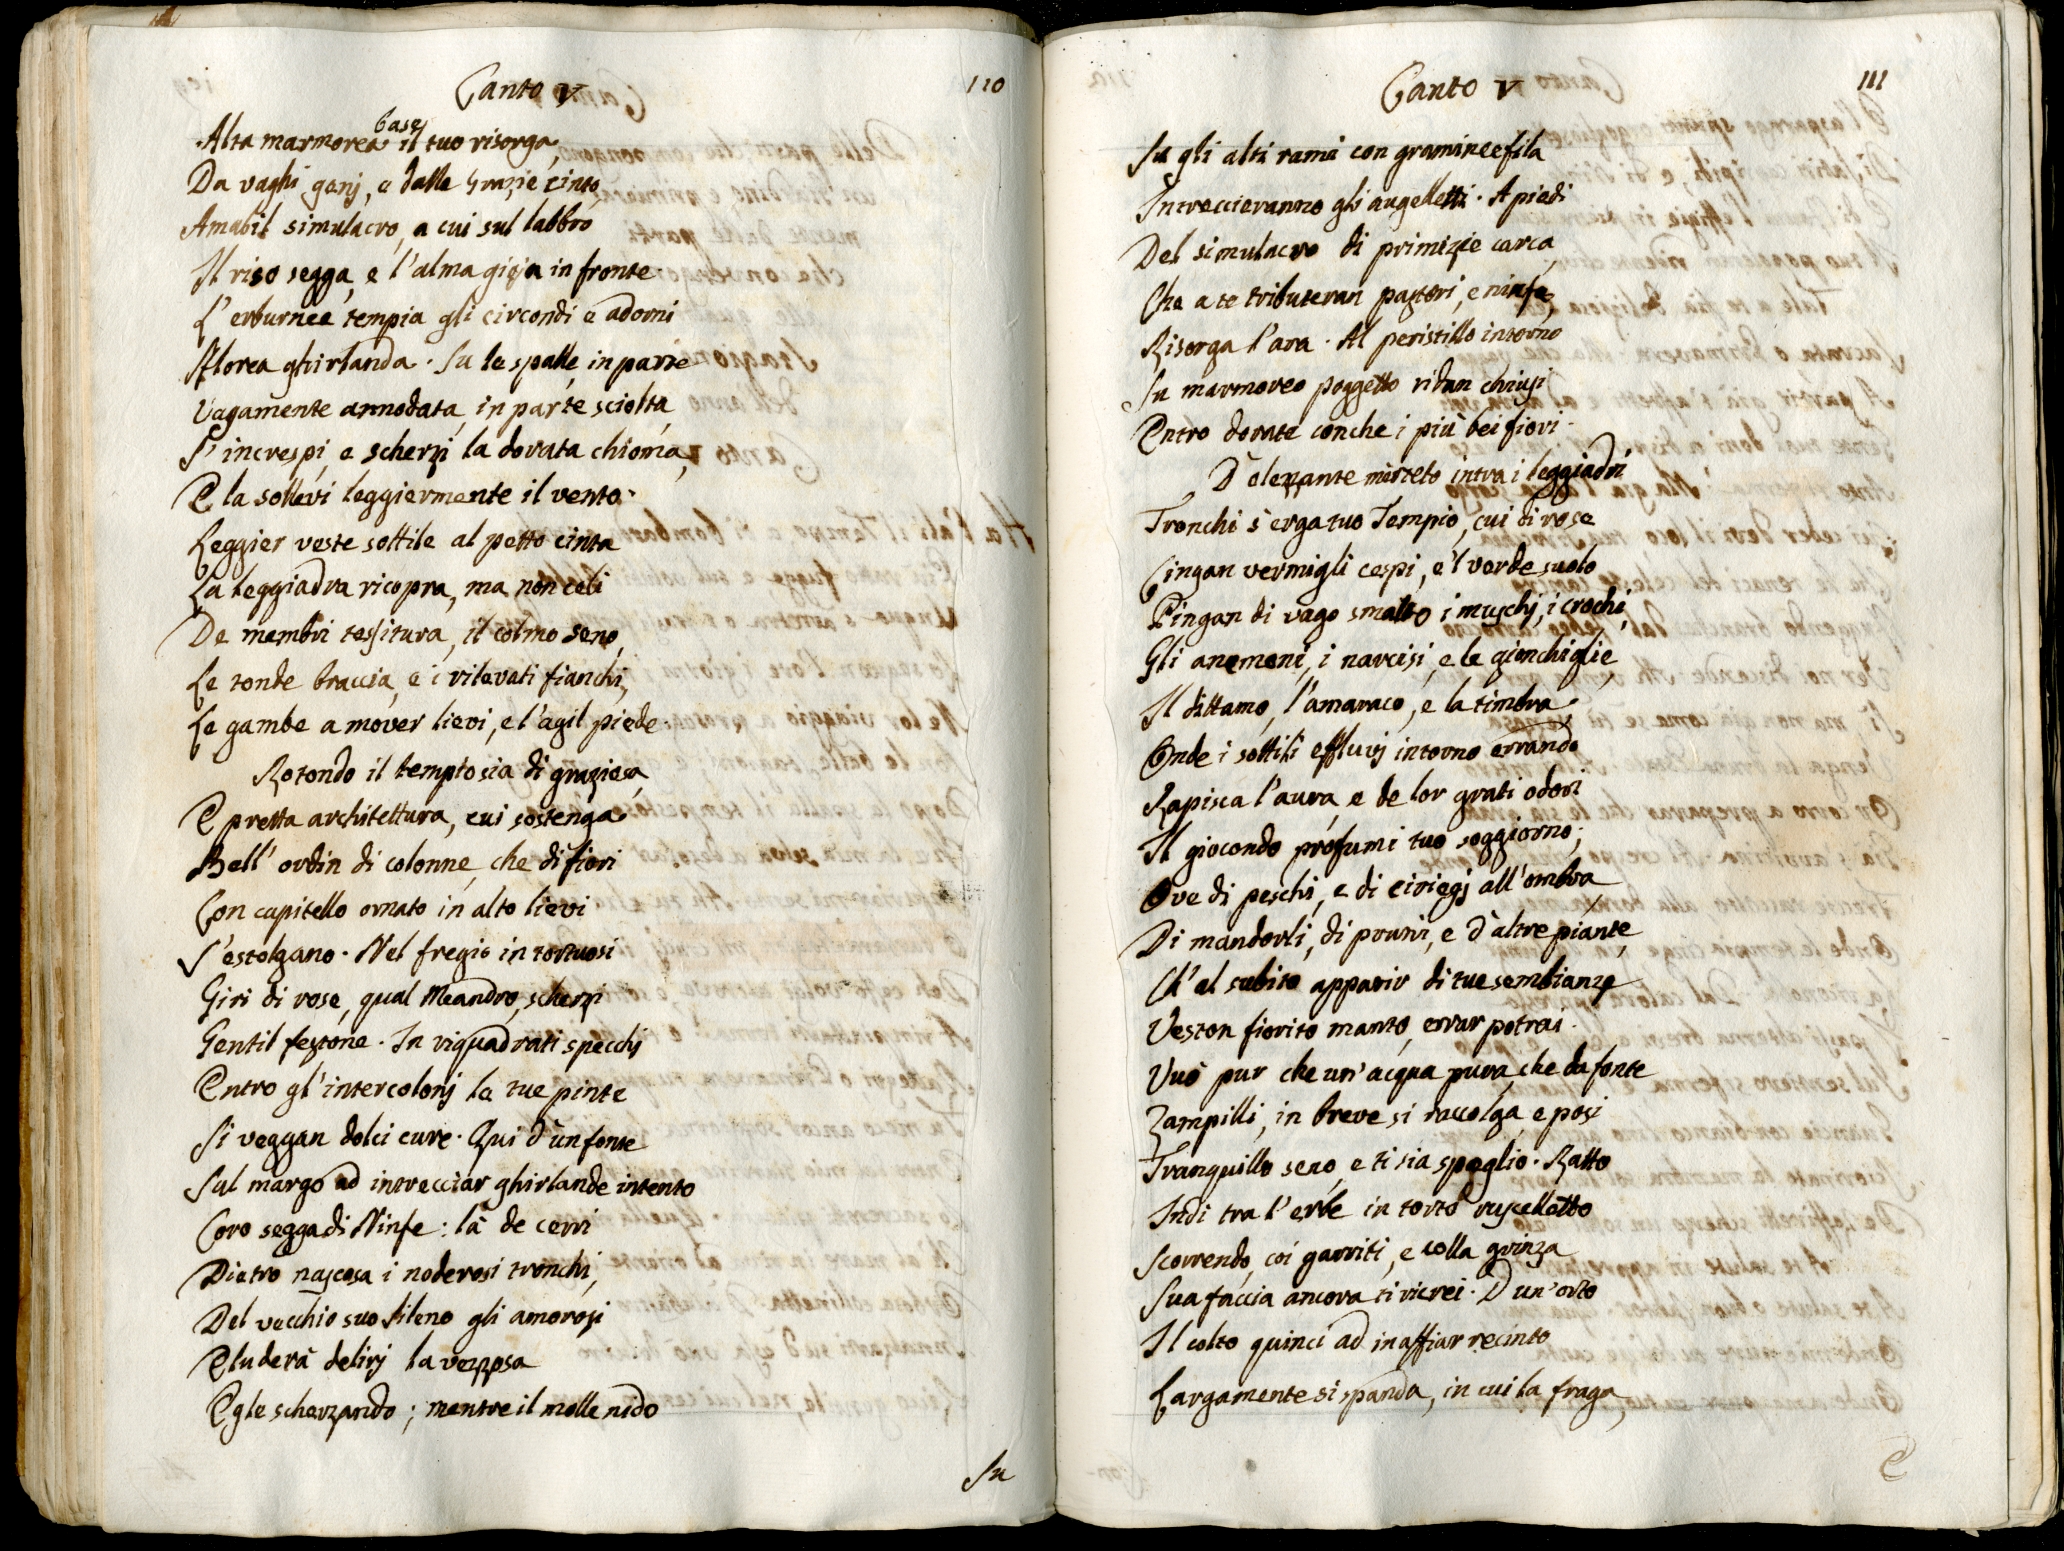 Canto V
110
Alta marmorea base il tuo risorga,
Da vaghi genj, e dalle Grazie cinto,
Amabil simulacro, a cui sul labbro
Il riso segga, e l'alma gioja in fronte.
L'erburnee tempia gli circondi e adorni
Florea ghirlanda. Su le spalle, in parte
Vagamente annodata, in parte sciolta,
S'increspi, e scherzi la dorata chioma,
E la sollevi leggiermente il vento.
Leggier veste sottile al petto cinta
La leggiadra ricopra, ma non celi
De membri tessitura, il colmo seno,
Le tonde braccia, e i rilevati fianchi,
Le gambe a mover lievi, e l'agil piede.
Rotondo il tempio sia di graziosa,
E pretta architettura, cui sostenga
Bell' ordin di colonne, che di fiori
Con capitello ornato in alto lievi
S'estolgano. Nel fregio in tortuosi
Giri di rose, qual Meandro, scherzi
Gentil festone. In riquadrati specchj
Entro gl'intercolonj le tue pinte
Si veggan dolci cure. Qui d'un fonte
Sul margo ad intrecciar ghirlande intento
Coro segga di Ninfe: là de cerri
Dietro nascosa i noderosi tronchi,
Del vecchio suo Sileno gli amorosi
Eluderà delirj la vezzosa
Egle scherzando; mentre il molle nido
Su
Canto V
111
Su gli alti rami con graminee fila
Intreccieranno gli augelletti. A piedi
Del simulacro di primizie carca,
Che a te tributeran pastori, e ninfe,
Risorga l'ara. Al peristillo intorno
Su marmoreo poggetto ridan chiusi
Entro dorate conche i più bei fiori.
D'olezzante mirteto intra i leggiadri
Tronchi s'erga tuo Tempio, cui di rose
Cingan vermigli cespi, e'l verde suolo
Pingan di vago smalto i muschj, i crochi,
Gli anemoni, i narcisi, e le gionchiglie,
Il dittamo, l'amaraco, e la timbra.
Onde i sottili effluvj intorno errando
Rapisca l'aura, e de lor grati odori
Il giocondo profumi tuo soggiorno;
Ove di peschi, e di ciriegj all'ombra
Di mandorli, di pruni, e d'altre piante,
Ch'al subito apparir di tue sembianze
Veston fiorito manto, errar potrai.
Vuò pur che un'acqua pura, che da fonte
Zampilli, in breve si raccolga, e posi
Tranquillo seno, e ti sia speglio. Ratto
Indi tra l'erbe in torto ruscelletto
Scorrendo, coi garriti, e colla grinza
Sua faccia ancora ti ricrei. D'un'orto
Il colto quinci ad inaffiar recinto
Largamente si spanda, in cui la fraga,
E